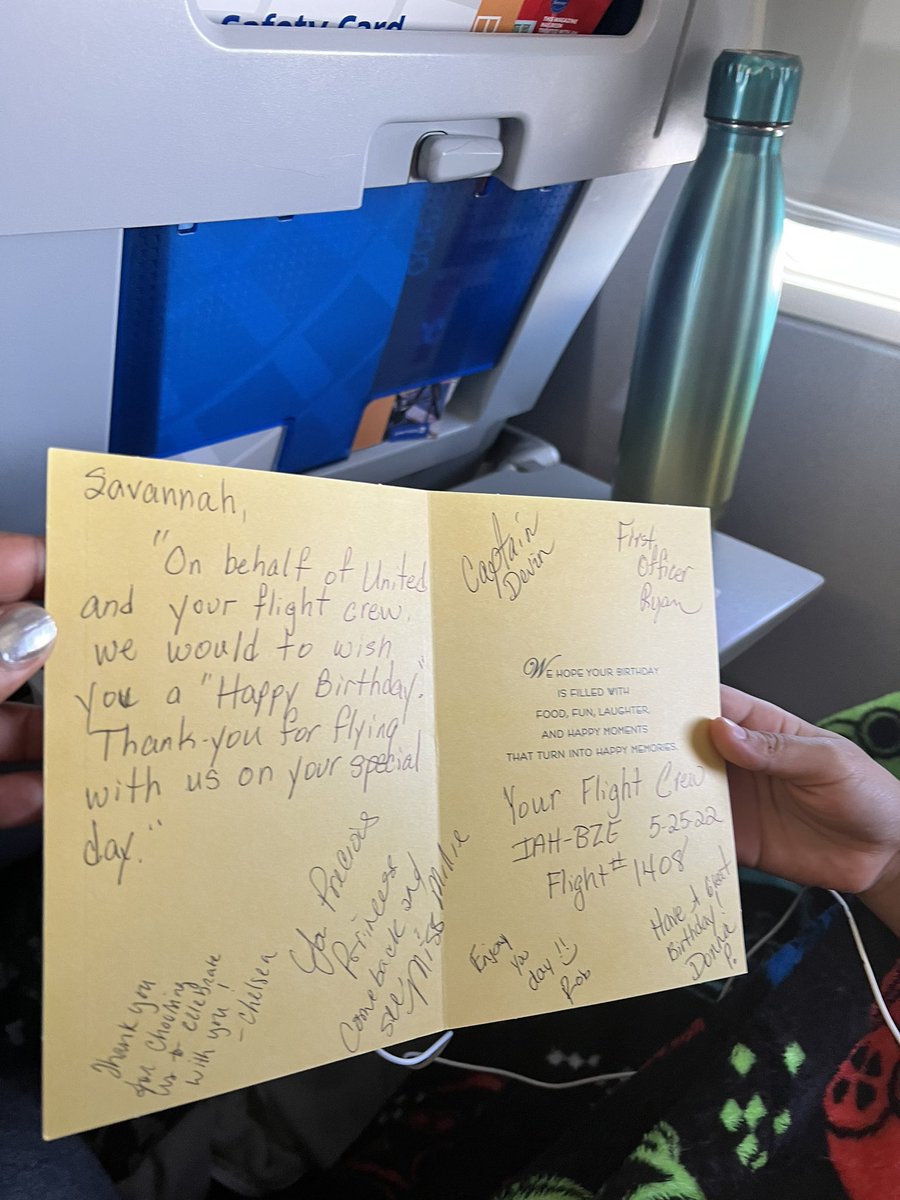 Safety Card
THIS MAGAZINE
Savannah,
"On behalf of United
and your flight crew,
we would to wish
you a "Happy Birthday."
Thank-you for flying
with us on your special
day."
Thank you
for choosing
us to celebrate
with you!
-Chelsea
Ya Precious
Princess
Come back and
see Miss Millie
Captain
Devin
First
Officer
Ryan
WE HOPE YOUR BIRTHDAY
IS FILLED WITH
FOOD, FUN, LAUGHTER,
AND HAPPY MOMENTS
THAT TURN INTO HAPPY MEMORIES.
Your Flight Crew
IAH-BZE 5-25-22
Flight# 1408
Enjoy
Ya
day!!
Rob
Have A Great
Birthday!
Donna
P.